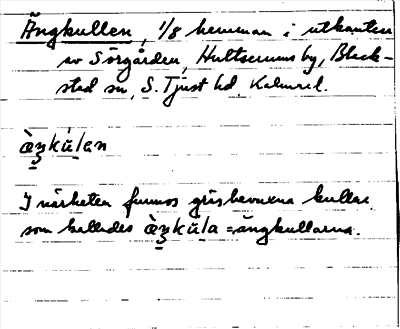 Ängkullen, 1/8 hemman i utkanten
av Sörgården, Hultserums by, Black-
stad sn, S. Tjust hd, Kalmar l.
I närheten finnas gräsbevuxna kullar
som kallades = ängkullarna.